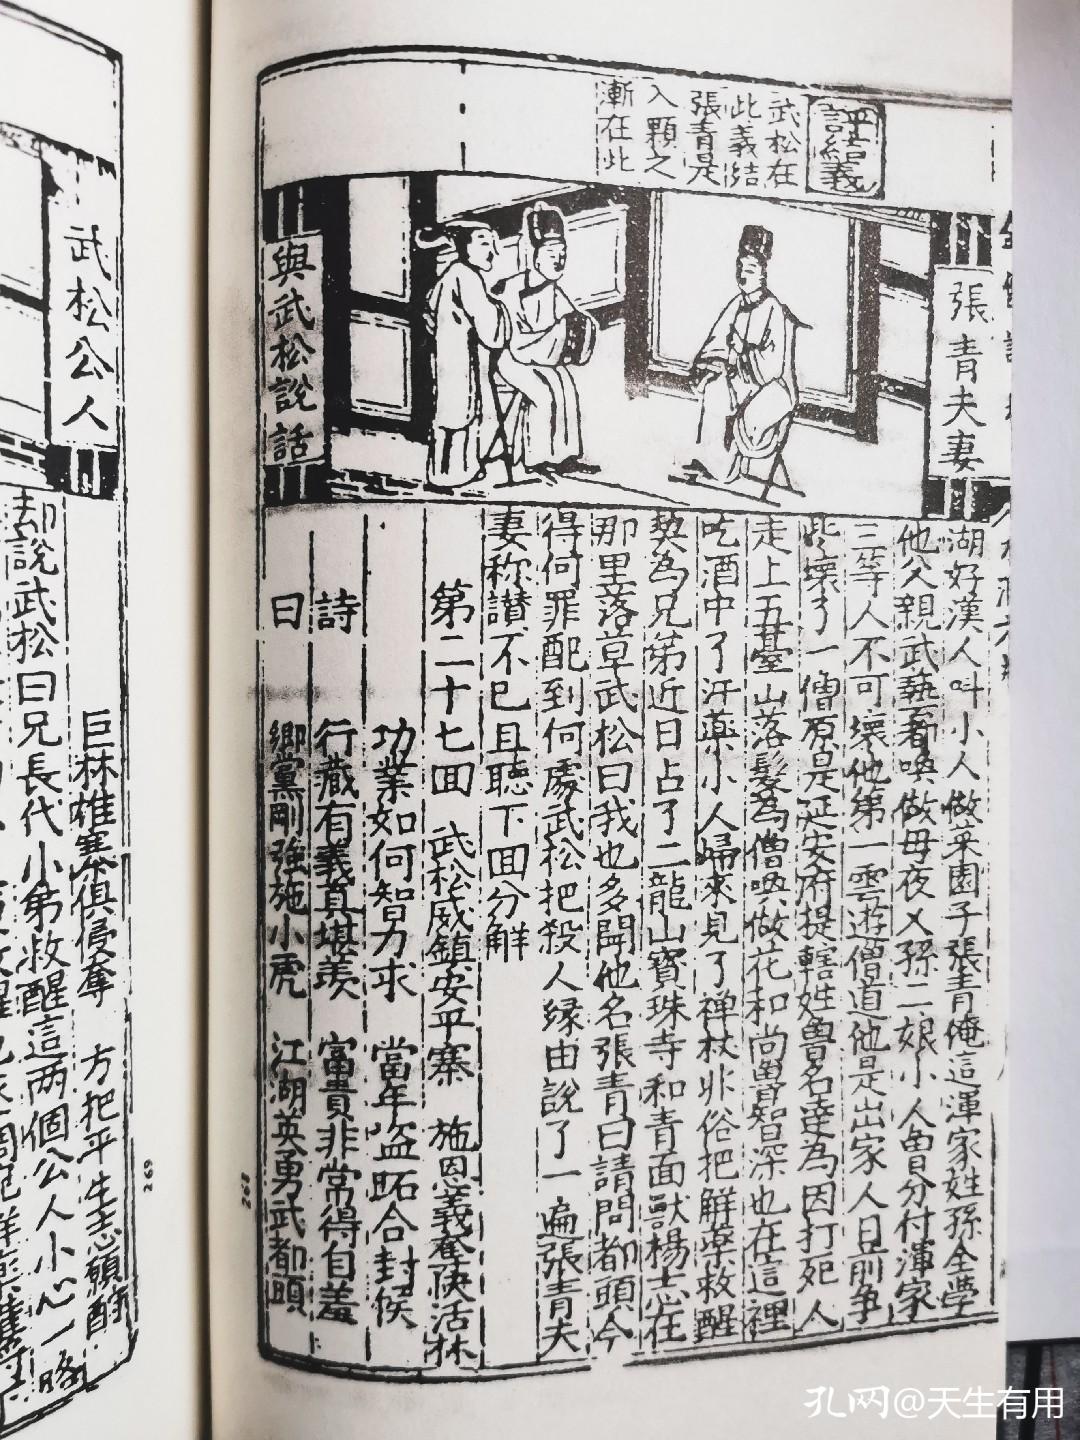 評結義
武松在
此義結
張青是
入顆之
漸在此
張青夫妻
與武松說話
湖好漢人叫小人做菜園子張青俺這渾家姓孫全學
他父親武藝都喚做母夜叉孫二娘小人曾分付渾家
三等人不可壞他第一雲遊僧道他是出家人日前争
些壞了一僧原是延安府提轄姓魯名達為因打死人
走上五臺山落髮為僧喚做花和尚魯智深也在這裡
吃酒中了汗藥小人歸來見了禅杖非俗把解藥救醒
契為兄弟近日占了二龍山寶珠寺和青面獸楊志在
那里落草武松曰我也多聞他名張青曰請問都頭今
得何罪配到何處武松把殺人緣由說了一遍張青夫
妻称讃不已且聴下回分解
第二十七回 武松威鎮安平寨 施恩義奪快活林
功業如何智力求 當年盗跖合封侯
詩 行藏有義真堪羨 富貴非常得自羞
曰 鄉黨剛強施小虎 江湖英勇武都頭
268
武松公人
巨林雄寨俱侵奪 方把平生志願酧
却說武松曰兄長代小弟救醒這两個公人小心一路
269
孔网@天生有用